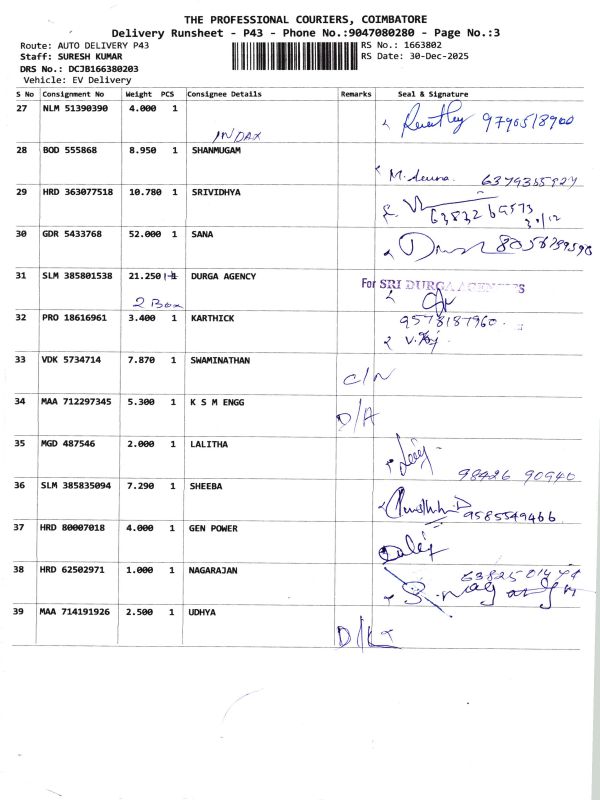 THE PROFESSIONAL COURIERS, COIMBATORE
Delivery Runsheet - P43 - Phone No.:9047080280 - Page No.:3
Route: AUTO DELIVERY P43 RS No.: 1663802
Staff: SURESH KUMAR RS Date: 30-Dec-2025
DRS No.: DCJB166380203
Vehicle: EV Delivery
S No Consignment No Weight PCS Consignee Details Remarks Seal & Signature
27 NLM 51390390 4.000 1
INDAX
28 BOD 555868 8.950 1 SHANMUGAM
29 HRD 363077518 10.780 1 SRIVIDHYA
30/12
30 GDR 5433768 52.000 1 SANA
31 SLM 385801538 21.250 DURGA AGENCY For SRI DURGA AGENCIES
2 Box
32 PRO 18616961 3.400 1 KARTHICK 9578187960
33 VDK 5734714 7.870 1 SWAMINATHAN
C/N
34 MAA 712297345 5.300 1 K S M ENGG
D/A
35 MGD 487546 2.000 1 LALITHA
98426 90940
36 SLM 385835094 7.290 1 SHEEBA
9585549466
37 HRD 80007018 4.000 1 GEN POWER
38 HRD 62502971 1.000 1 NAGARAJAN
39 MAA 714191926 2.500 1 UDHYA